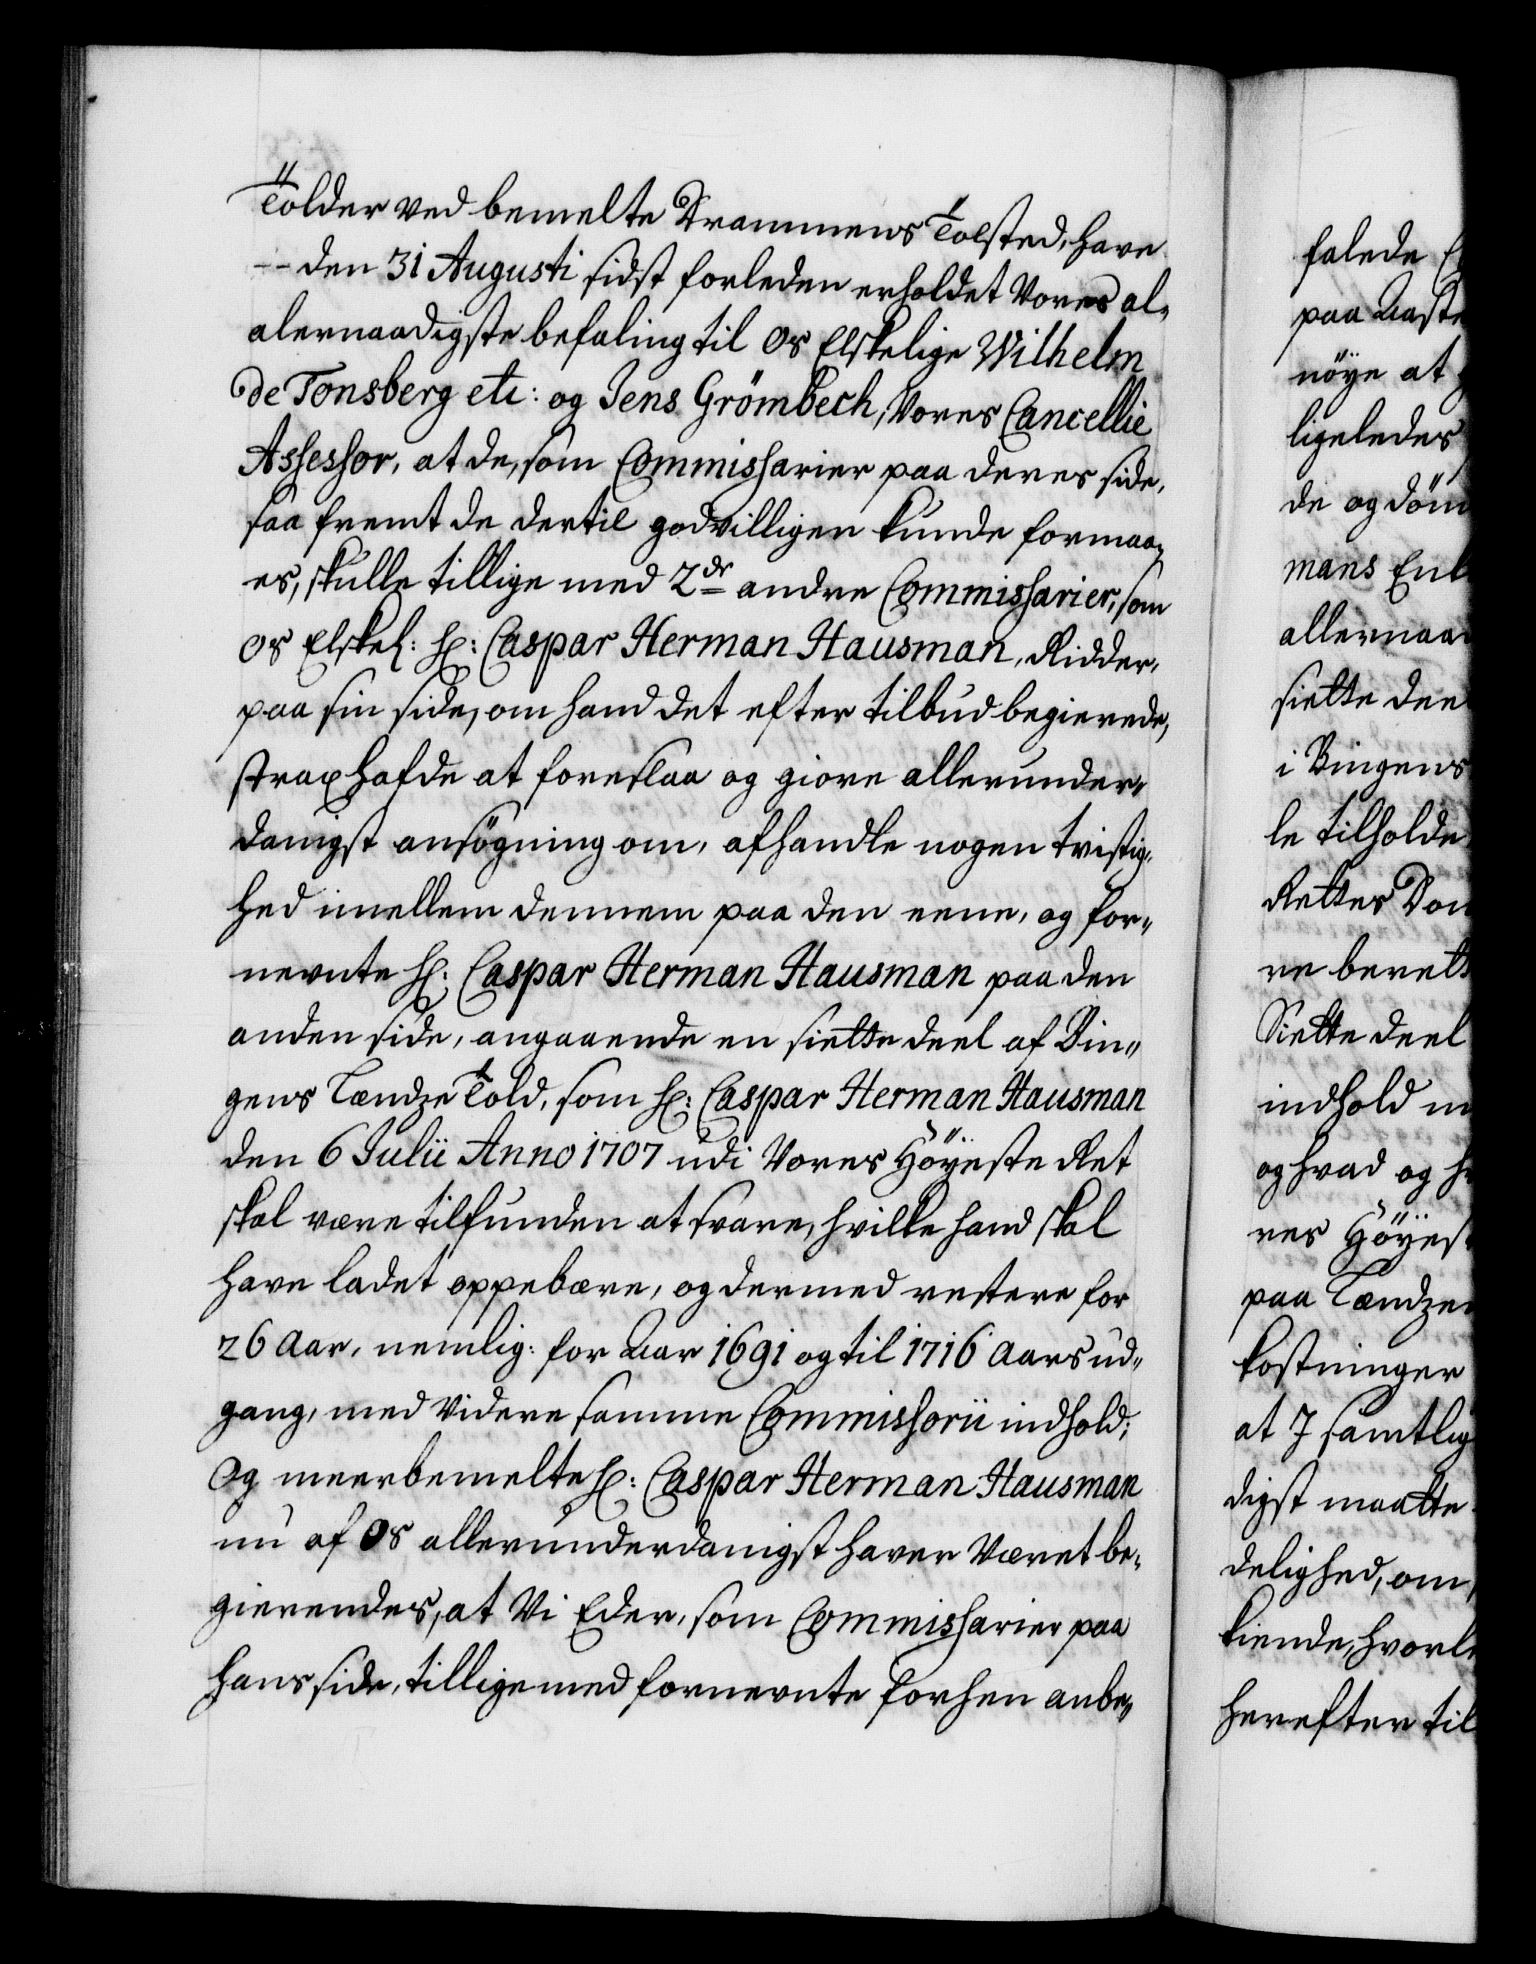 Tolder ved bemelte Drammens Tolsted, have
-- den 31 Augusti sidst forleden erholdet Vores al-
alernaadigste befaling til Os Elskelige Wilhelm
de Tonsberg etc: og Jens Grömbech, Vores Cancellie
Assessor, at de, som Commissarier paa deres side,
saa fremt de dertil godvilligen kunde formaa-
es, skulle tillige med 2de andre Commissarier, som
Os Elskel: H: Caspar Herman Hausman, Ridder,
paa sin side, om hand det efter tilbud begierede,
strax hafde at foreslaa og giøre allerunder-
danigst ansögning om, afhandle nogen tvistig-
hed imellem dennem paa den eene, og for-
nevnte H: Caspar Herman Hausman paa den
anden side, angaaende en siette deel af Bin-
gens Lændze Told, som H: Caspar Herman Hausman
den 6 Julii Anno 1707 udi Vores Höyeste Ret
skal være tilfunden at svare, hvilke hand skal
have ladet oppebære, og dermed restere for
26 Aar, nemlig: for Aar 1691 og til 1716 Aars ud-
gang, med Videre samme Commissorii indhold;
Og meerbemelte H: Caspar Herman Hausman
nu af Os allerunderdanigst haver Været be-
gierendes, at Vi Eder, som Commissarier paa
hans side, tillige med fornevnte forhen anbe-
falede
paa
nöye at
ligeledes
de og döm
mans Enk
allernaa
siette dee
i Bingens
le tilholde
Rettes Dom
re berett
Siette deel
indhold
og hvad og
res Höyes
paa Lændze
kostninger
at I samtlig
digst maatte
delighed, om
kiende, hvorl
herefter til